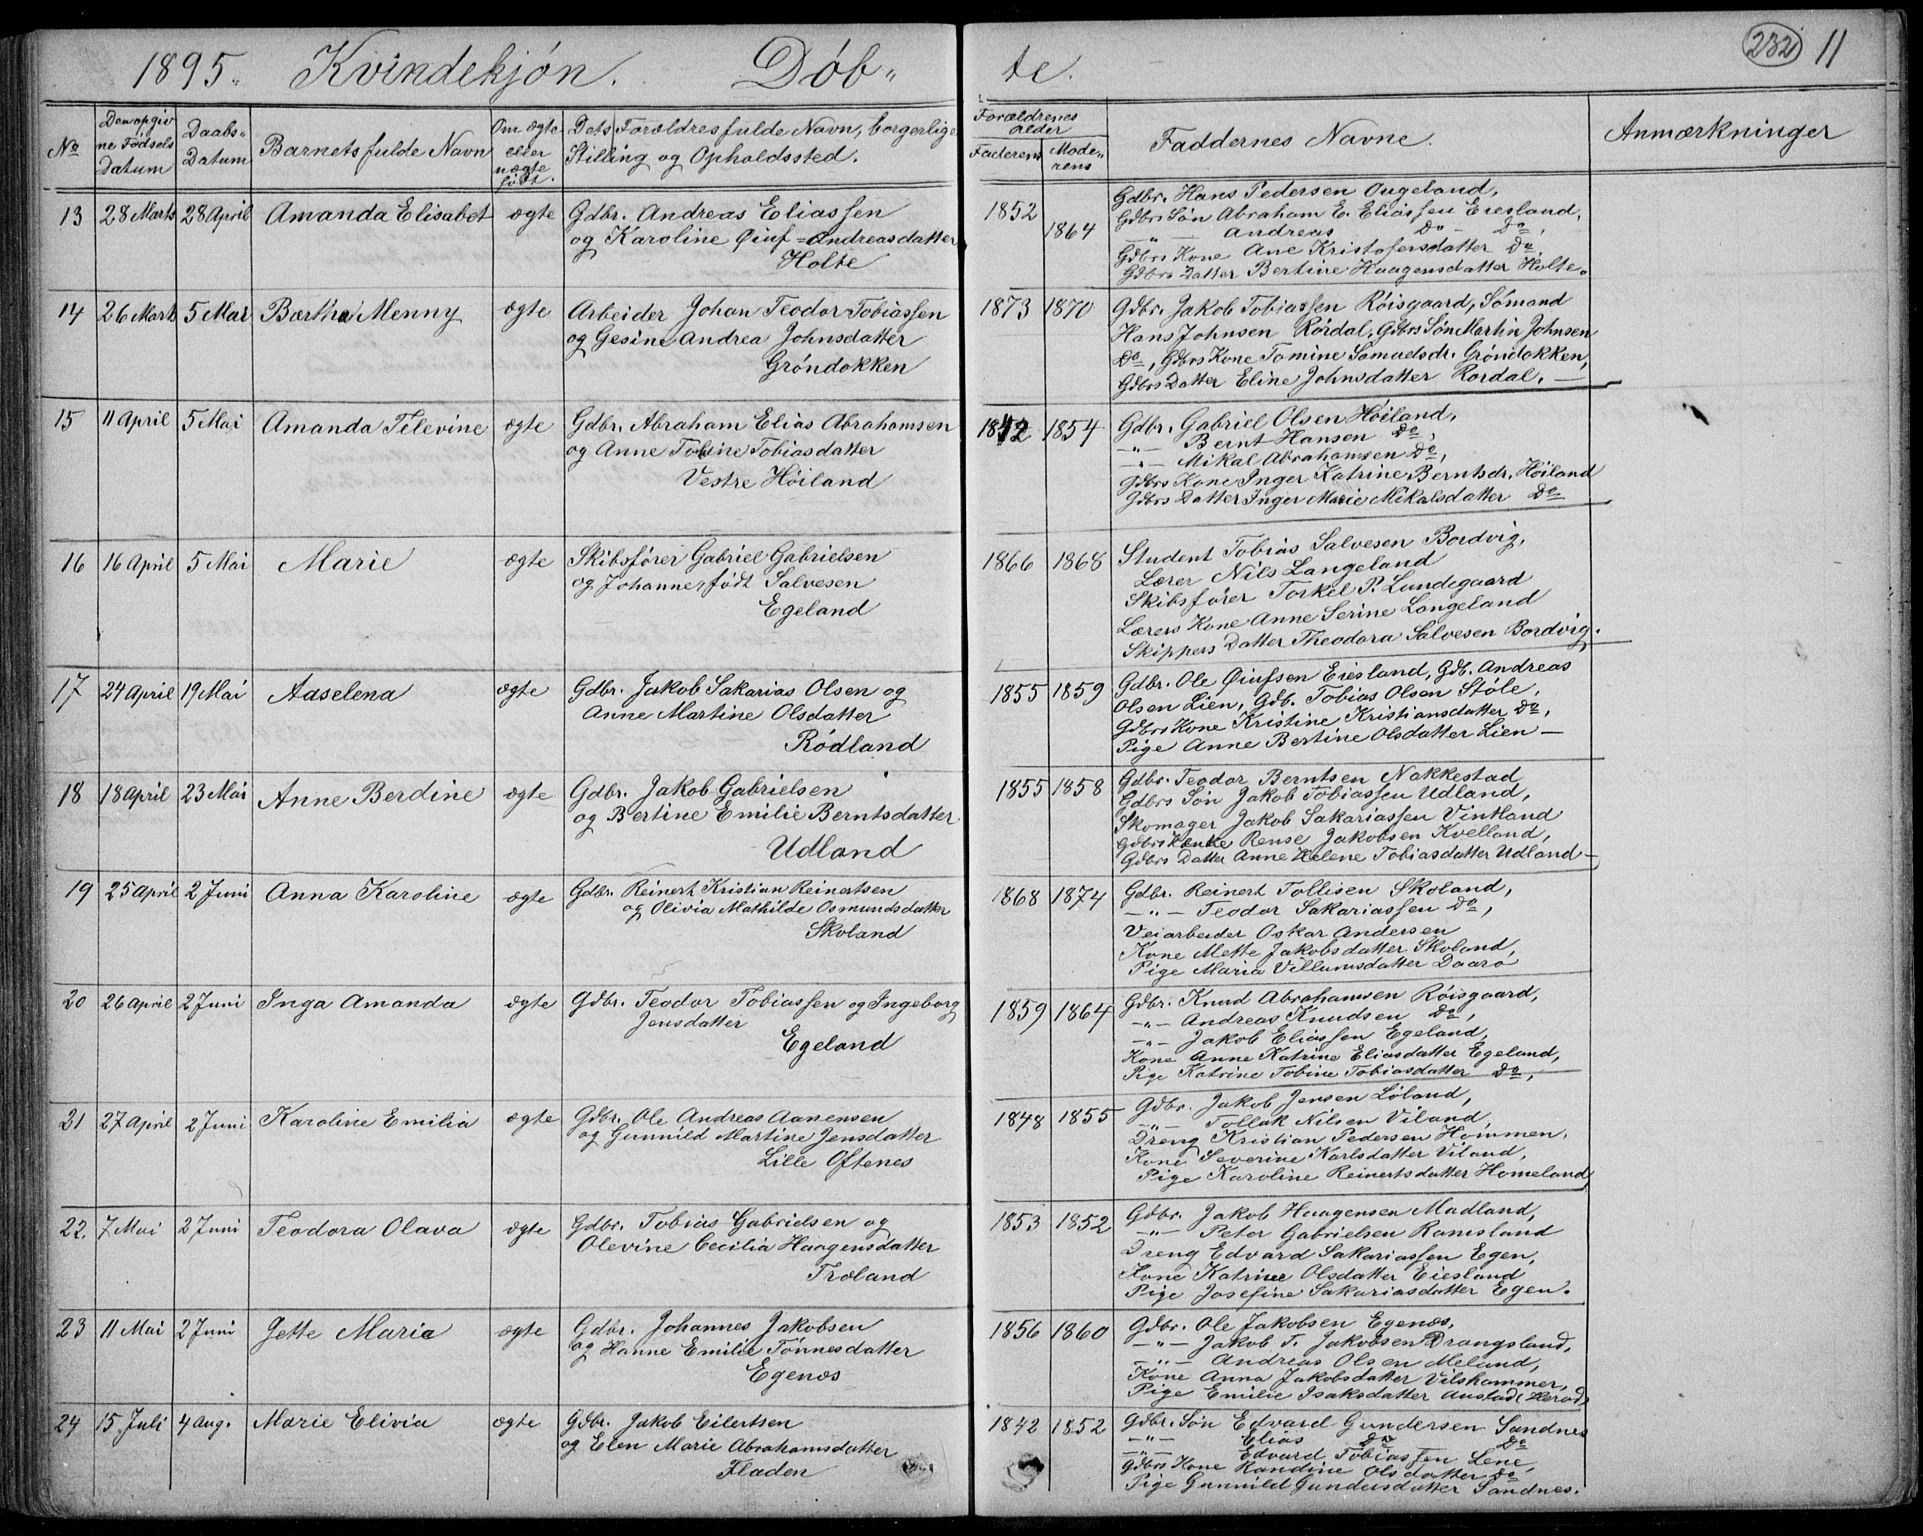 1895. Kvindekjön. Döb-
te.
232 11
No
Den opgiv
ne Födsels
Datum
Daabs-
Datum
Barnets fulde Navn
Om ægte
eller
uægte
født.
Dets Forældres fulde Navn, borgerlige
Stilling og Opholdssted.
Forældrenes
alder
Faderens
Mode-
rens
Faddernes Navne.
Anmærkninger
13 28 Marts 28 April Amanda Elisabet ægte Gdbr. Andreas Eliassen
og Karoline Öiuf-Andreasdatter
Holte
1852 1864
Gdbr. Hans Pedersen Ougeland,
Gdbrs Søn Abraham E. Eliassen Eiesland,
—"— Andreas Do - Do,
Gdbrs Kone Ane Kristofersdatter Do,
Gdbrs Datter Bertine Haagensdatter Holte.
14 26 Marts 5 Mai Bertha Menny ægte Arbeider Johan Teodor Tobiassen
og Gesine Andrea Johnsdatter
Gröndokken
1873 1870
Gdbr. Jakob Tobiassen Röisgaard, Sömand
Hans Johnsen Rördal, Gdbrs Søn Martin Johnsen
Do, Gdbrs Kone Tomine Samuelsdr. Gröndokken,
Gdbrs Datter Eline Johnsdatter Rördal. —
15 11 April 5 Mai Amanda Televine ægte Gdbr. Abraham Elias Abrahamsen
og Anne Tobine Tobiasdatter
Vestre Höiland
1842 1854
Gdbr. Gabriel Olsen Höiland,
—"— Bernt Hansen Do,
—"— Mikal Abrahamsen Do,
Gdbrs Kone Inger Katrine Berntsdr. Höiland
Gdbrs Datter Inger Marie Mikalsdatter Do
16 16 April 5 Mai Marie ægte Skibsförer Gabriel Gabrielsen
og Johanne, født Salvesen
Egeland
1866 1868
Student Tobias Salvesen Bordvig,
Lærer Nils Langeland
Skibsfører Torkel P. Lundegaard
Lærers Kone Anne Serine Langeland
Skippers Datter Theodora Salvesen Bordvig.
17 24 April 19 Mai Aaselena ægte Gdbr. Jakob Sakarias Olsen og
Anne Martine Olsdatter
Rödland
1855 1859
Gdbr. Ole Öiufsen Eiesland, Gdb. Andreas
Olsen Lien, Gdb. Tobias Olsen Stöle,
Gdbrs Kone Kristine Kristiansdatter Do,
Pige Anne Bertine Olsdatter Lien —
18 18 April 23 Mai Anne Berdine ægte Gdbr. Jakob Gabrielsen
og Bertine Emilie Berntsdatter
Udland
1855 1858
Gdbr. Teodor Berntsen Nakkestad
Gdbrs Søn Jakob Tobiassen Udland,
Skomager Jakob Sakariassen Vintland
Gdbrs Kone Rense Jakobsen Kvelland,
Gdbrs Datter Anne Helene Tobiasdatter Udland —
19 25 April 2 Juni Anna Karoline ægte Gdbr. Reinert Kristian Reinertsen
og Olivia Mathilde Osmundsdatter
Skoland
1868 1874
Gdbr. Reinert Tollisen Skoland,
—"— Teodor Sakariassen Do,
Veiarbeider Oskar Andersen
Kone Mette Jakobsdatter Skoland,
Pige Maria Villumsdatter Daarø
20 26 April 2 Juni Inga Amanda ægte Gdbr. Teodor Tobiassen og Ingeborg
Jensdatter
Egeland
1859 1864
Gdbr. Knud Abrahamsen Röisgaard,
—"— Andreas Knudsen Do,
—"— Jakob Eliassen Egeland,
Kone Anne Katrine Eliasdatter Egeland,
Pige Katrine Tobine Tobiasdatter Do,
21 27 April 2 Juni Karoline Emilia ægte Gdbr. Ole Andreas Aanensen
og Gunnild Martine Jensdatter
Lille Oftenes
1848 1855
Gdbr. Jakob Jensen Löland,
—"— Tollak Nilsen Viland,
Dreng Kristian Pedersen Hommen,
Kone Severine Karlsdatter Viland,
Pige Karoline Reinertsdatter Homeland,
22. 7 Mai 2 Juni Teodora Olava ægte Gdbr. Tobias Gabrielsen og
Olevine Cecilia Haagensdatter
Træland
1853 1852
Gdbr. Jakob Haagensen Madland,
—"— Peter Gabrielsen Ramsland
Dreng Edvard Sakariassen Egen,
Kone Katrine Olsdatter Eiesland
Pige Josefine Sakariasdatter Egen.
23 11 Mai 2 Juni Jette Maria ægte Gdbr. Johannes Jakobsen
og Hanne Emilie Tönnesdatter
Egenæs
1856 1860
Gdbr. Ole Jakobsen Egenæs,
—"— Jakob T. Jakobsen Drangsland,
—"— Andreas Olsen Meland,
Kone Anna Jakobsdatter Vilshammer,
Pige Emilie Isaksdatter Austad (Herad)
24 15 Juli 4 Aug. Marie Elivia ægte Gdbr. Jakob Eilertsen
og Elen Marie Abrahamsdatter
Fladen
1842 1852
Gdbr. Søn Edvard Gundersen Sandnes
—"— Elias Do Do
—"— Edvard Tobiassen Lene,
Gdbrs Kone Randine Olsdatter Do,
Pige Gunnild Gundersdatter Sandnes.